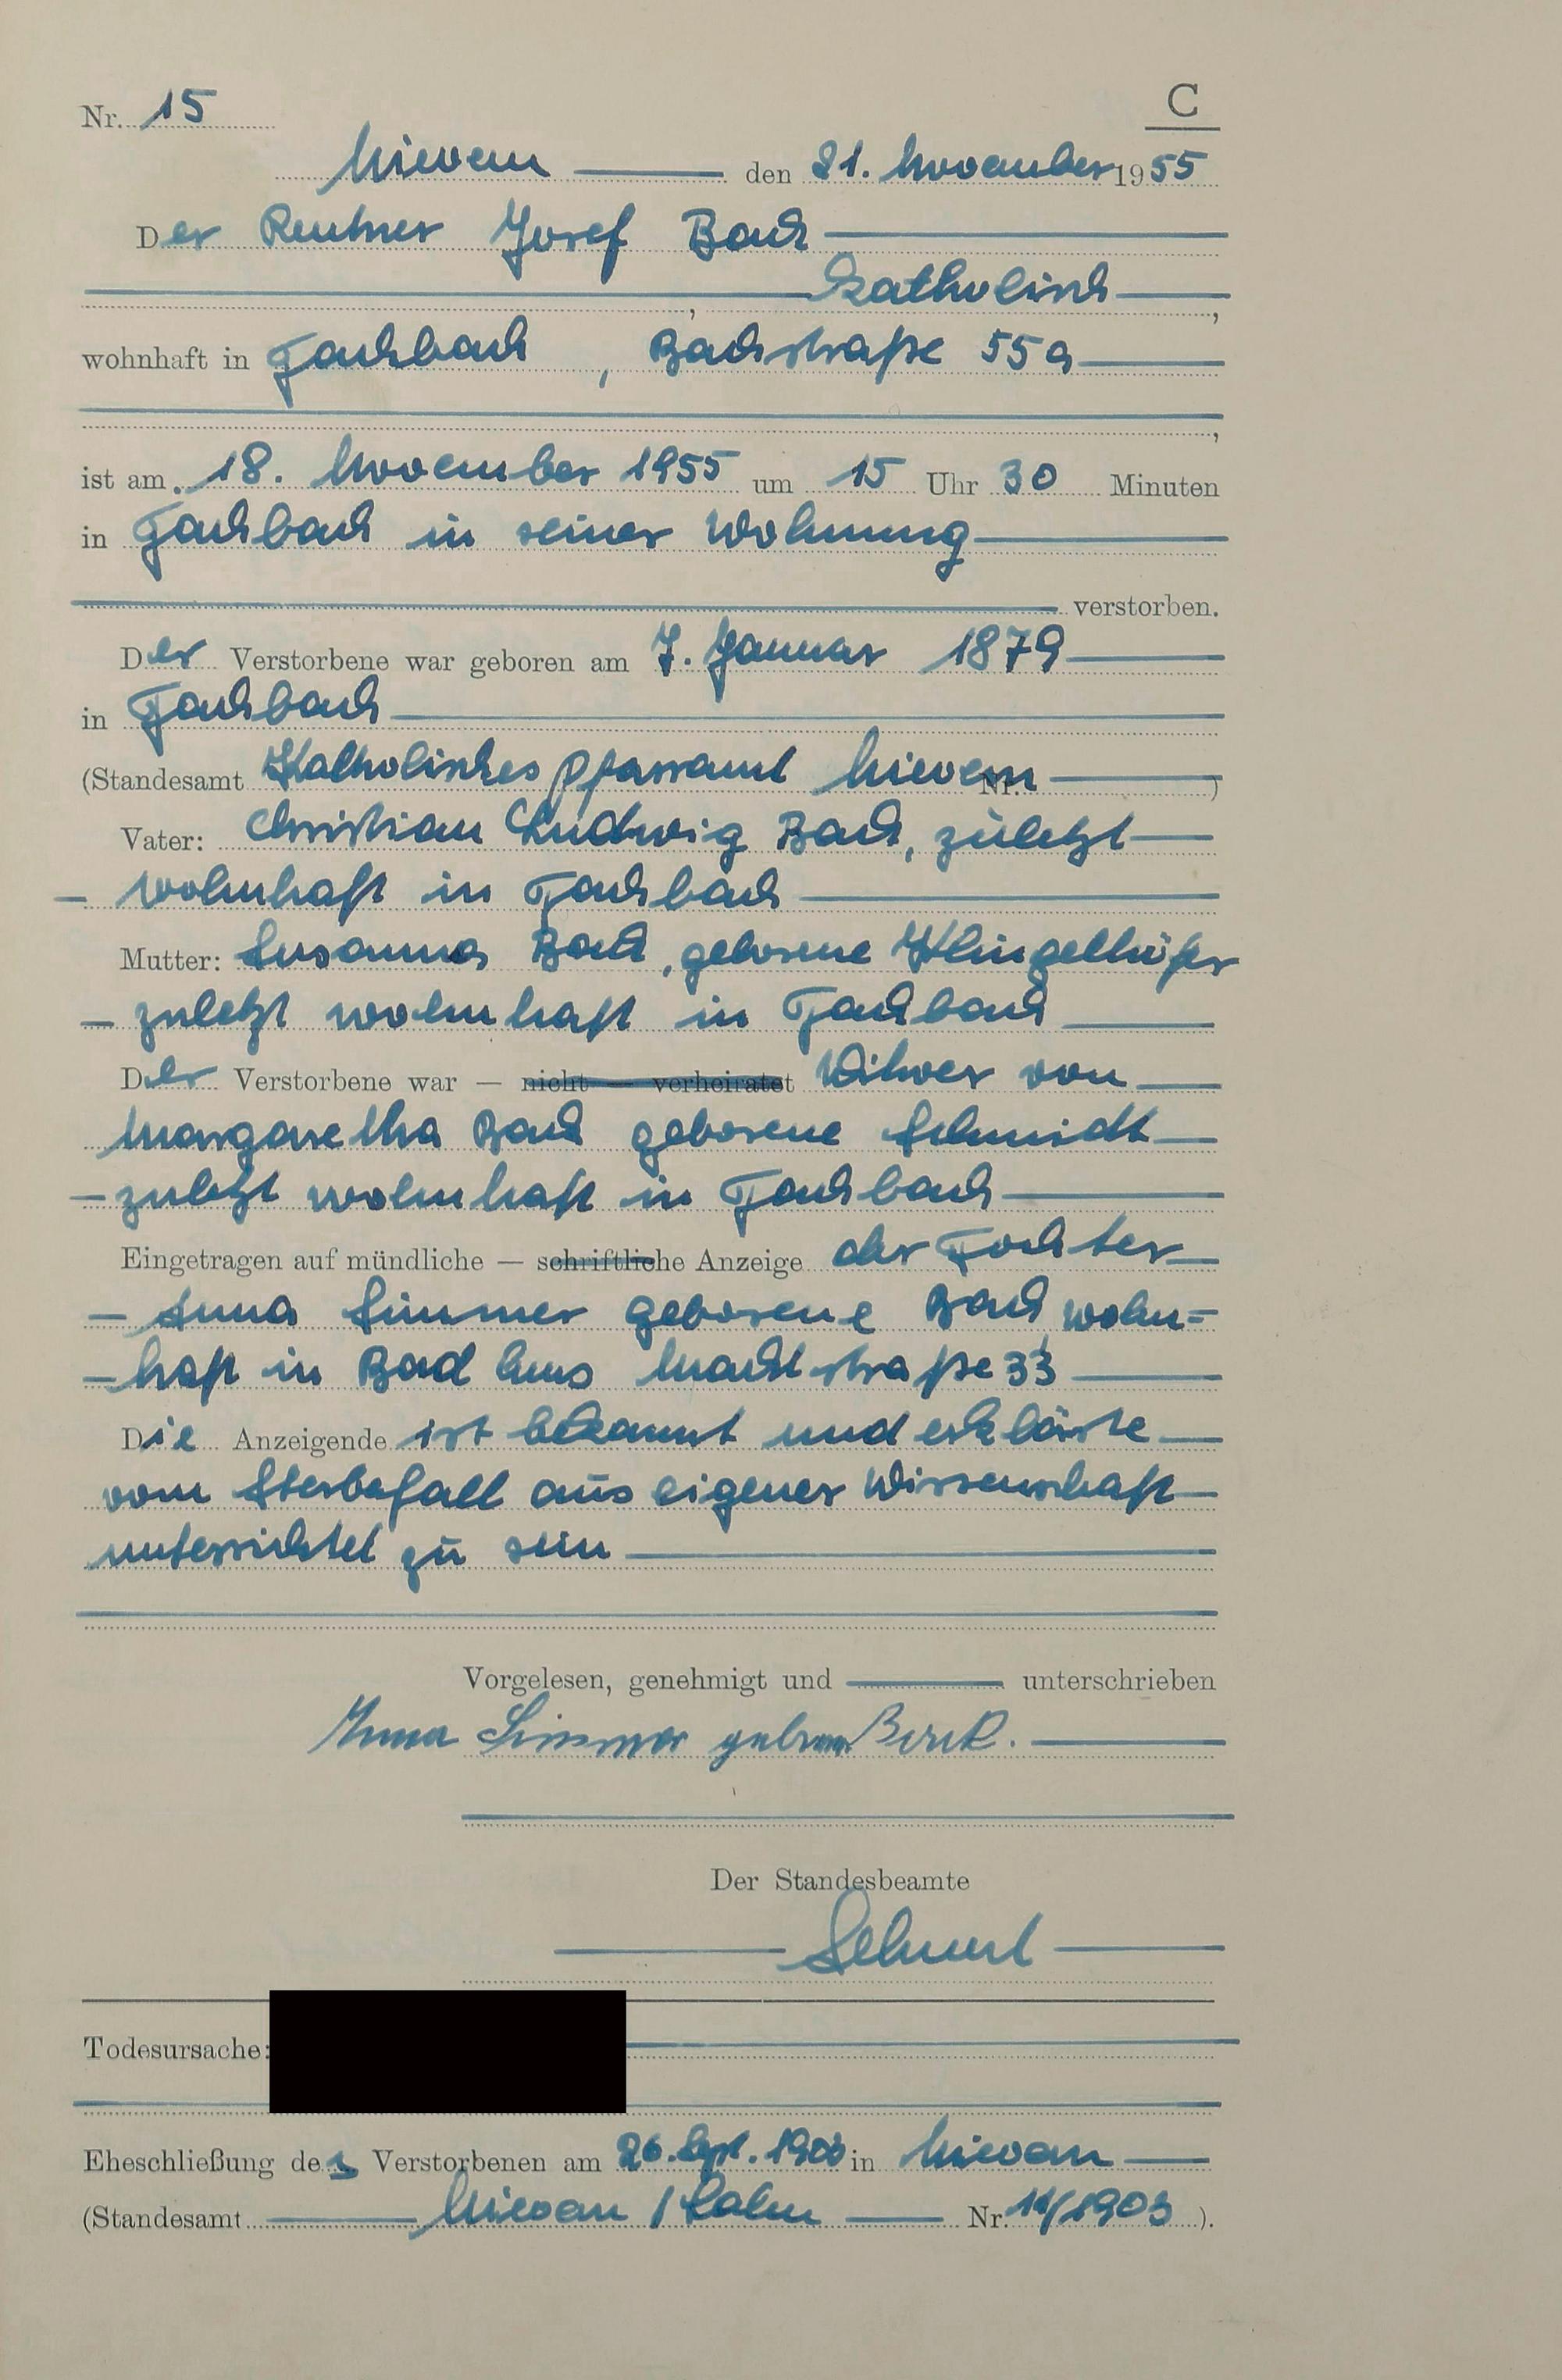 Nr. 15
C
Nievern den 21. November 1955
Der Rentner Josef Bach
katholisch,
wohnhaft in Fachbach, Bachstraße 55a
ist am 18. November 1955 um 15 Uhr 30 Minuten
in Fachbach in seiner Wohnung
verstorben.
Der Verstorbene war geboren am 7. Januar 1879
in Fachbach
(Standesamt Katholisches Pfarramt Nievern Nr. )
Vater: Christian Ludwig Bach, zuletzt
wohnhaft in Fachbach
Mutter: Susanna Bach, geborene Klingelhöfer
zuletzt wohnhaft in Fachbach
Der Verstorbene war — nicht — verheiratet Witwer von
Margaretha Bach geborene Schmidt
zuletzt wohnhaft in Fachbach
Eingetragen auf mündliche — schriftliche Anzeige der Tochter
Anna Simmer geborene Bach wohn=
haft in Bad Ems Marktstraße 33
Die Anzeigende ist bekannt und erklärte
vom Sterbefall aus eigener Wissenschaft
unterrichtet zu sein
Vorgelesen, genehmigt und unterschrieben
Anna Simmer geborene Bach.
Der Standesbeamte
Todesursache:
Eheschließung des Verstorbenen am 26. Sept. 1903 in Nievern
(Standesamt Nievern / Lahn Nr. 11/1903 ).